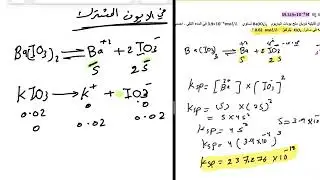 في الايون المشترك
Ba(IO₃)₂ ⇌ Ba⁺² + 2IO₃⁻
S 2S
KIO₃ → K⁺ + IO₃⁻
0.02 0 0
0 0.02 0.02
Ba(IO₃)₂ ⇌ Ba⁺² + 2IO₃⁻
S 2S
Ksp = [Ba⁺²] × [IO₃⁻]²
Ksp = (S) × (2S)²
= S × 4S²
Ksp = 4S³
Ksp = 4(3.9×10⁻⁴)³
Ksp = 237.276 × 10⁻¹²